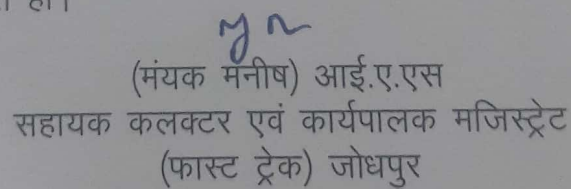 (मंयक मनीष) आई.ए.एस
सहायक कलक्टर एवं कार्यपालक मजिस्ट्रेट
(फास्ट ट्रेक) जोधपुर